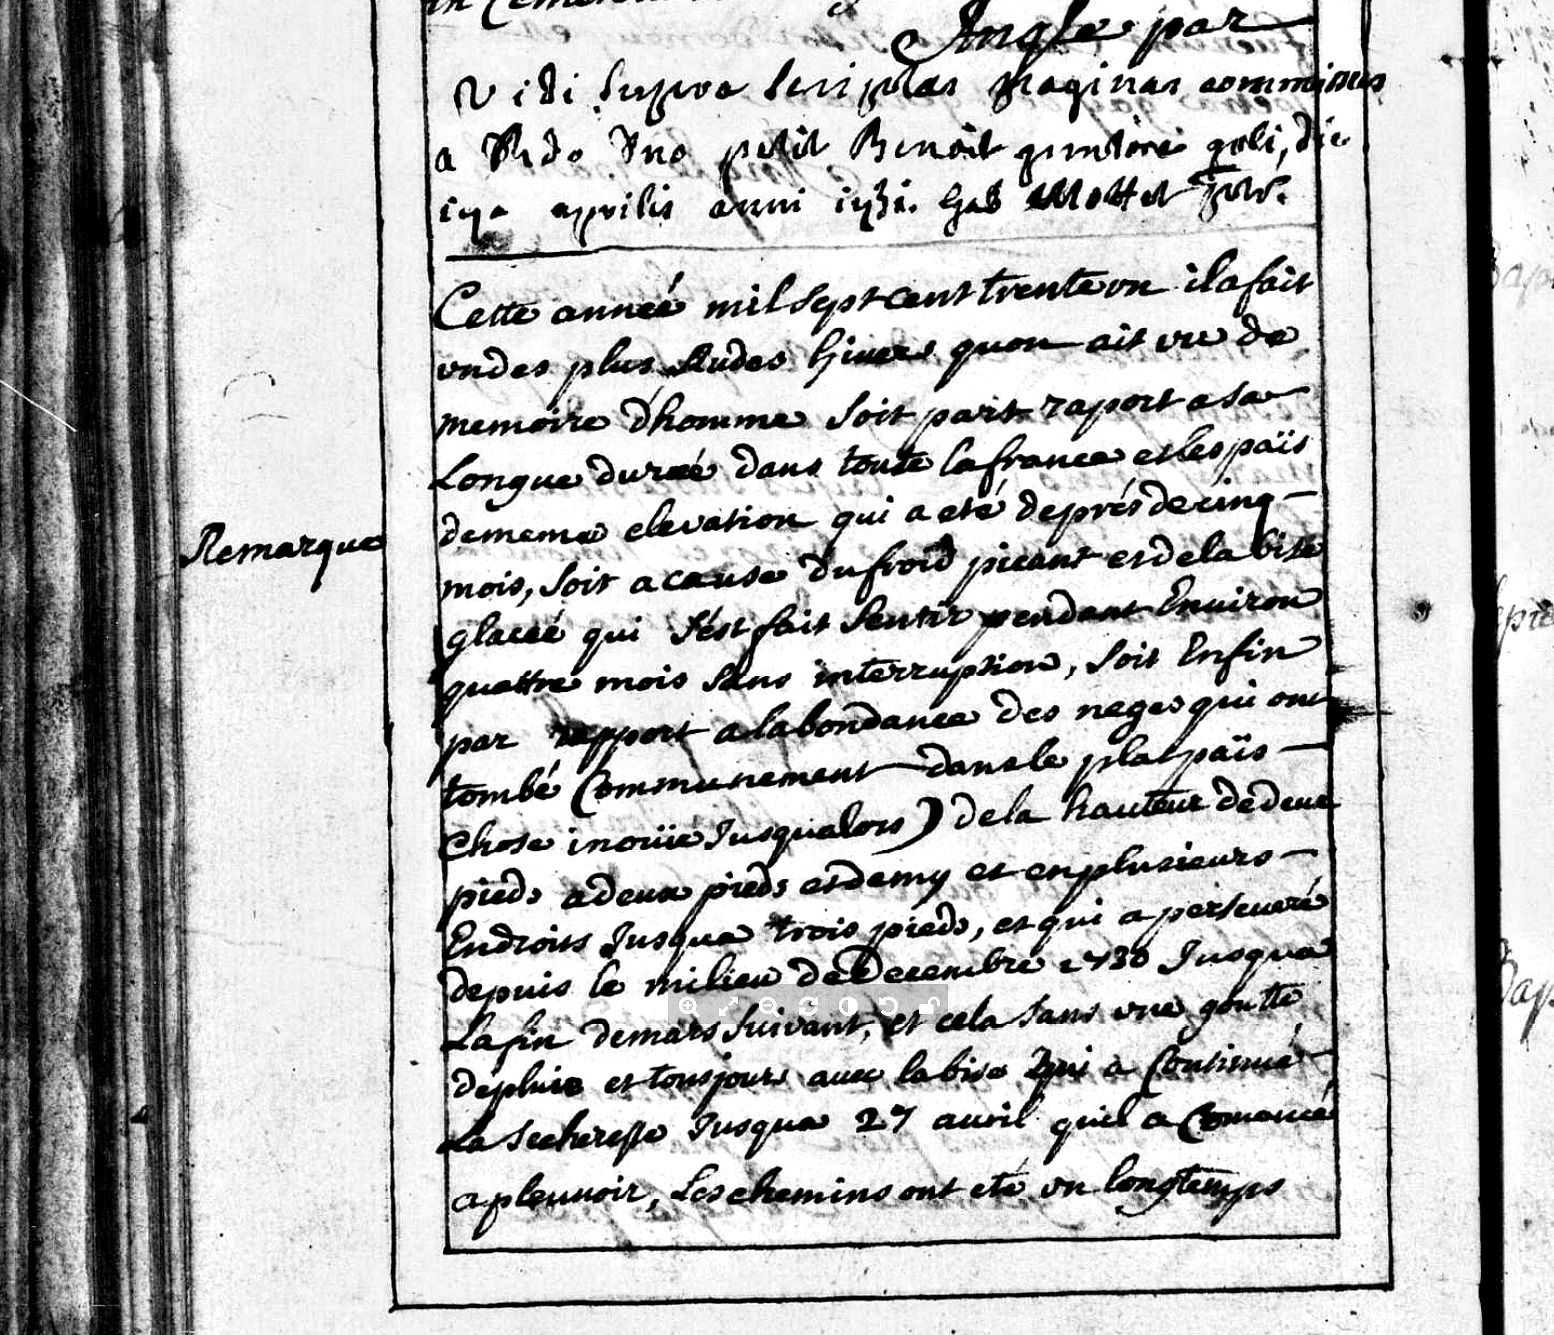 Angle par
Vidi supra scriptas paginas commissas
a Rdo Dno petit Benoit die
aprilis anni 1731.
Cette anneé mil sept cent trente vn il a fait
vn des plus Rudes hiuers quon ait vu de
memoire d'homme soit part raport a sa
Longue dureé dans toute la france et les païs
de meme elevation qui a eté de prés de cinq
mois, soit a cause du froid picant et de la bise
Remarque
glaceé qui s'est fait sentir pendant Enuiron
quattre mois sans interruption, soit Enfin
par rapport a labondance des neges qui ont
tombé Communement dans le plat païs
chose inoüie Jusqualors) de la hauteur de deux
pieds a deux pieds et demy et en plusieurs
Endroits Jusqua trois pieds, et qui a perseueré
depuis le milieu de Decembre 1730 Jusqua
La fin de mars suivant, et cela sans vne goutte
de pluie et tousjours auec la bise qui a Continué
La secheresse Jusqua 27 auril quil a Comancé
a pleuuoir, Les chemins ont eté vn longtemps